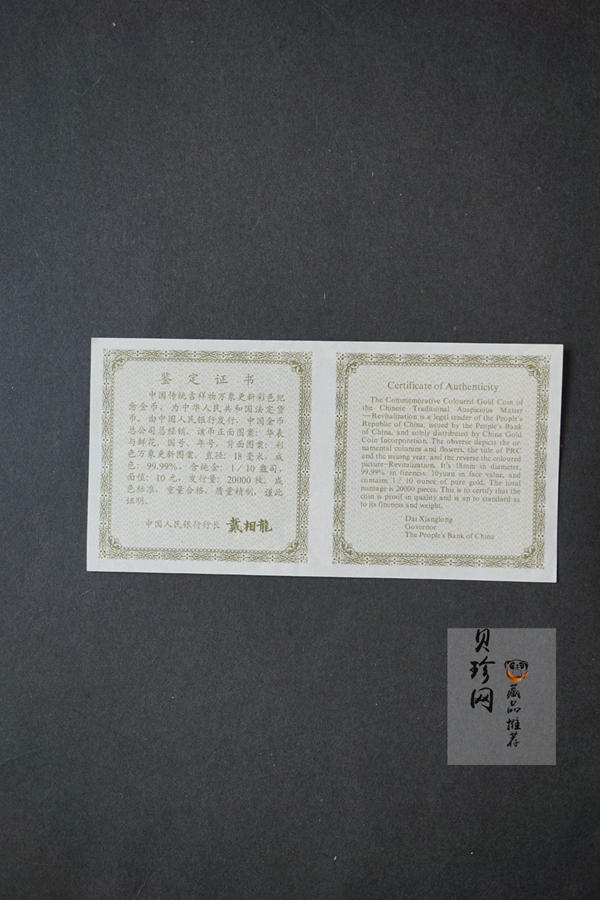 鉴定证书
中国传统吉祥物万象更新彩色纪
念金币，为中华人民共和国法定货
币，由中国人民银行发行，中国金币
总公司总经销，该币正面图案：华表
与鲜花、国号、年号，背面图案：彩
色万象更新图案。直径：18毫米，成
色：99.99%，含纯金：1/10盎司，
面值：10元，发行量：20000枚。成
色标准，重量合格，质量精制，谨此
证明。
中国人民银行行长 戴相龍
Certificate of Authenticity
The Commemorative Coloured Gold Coin of
the Chinese Traditional Auspicious Matter
—Revitalization is a legal tender of the People's
Republic of China, issued by the People's Bank
of China, and solely distributed by China Gold
Coin Incorporation. The obverse depicts the or-
namental columns and flowers, the title of PRC
and the issuing year, and the reverse the coloured
picture—Revitalization. It's 18mm in diameter,
99.99% in fineness, 10yuan in face value, and
contains 1/10 ounce of pure gold. The total
mintage is 20000 pieces. This is to certify that the
coin is proof in quality and is up to standard as
to its fineness and weight.
Dai Xianglong
Governor
The People's Bank of China
贝珍网
藏品推荐